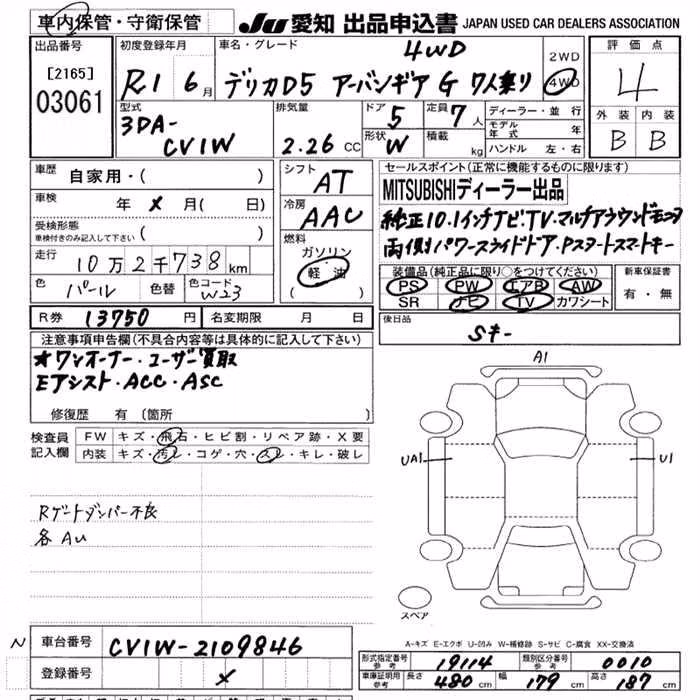 車内保管・守衛保管
JU 愛知 出品申込書 JAPAN USED CAR DEALERS ASSOCIATION
出品番号
[2165]
03061
初度登録年月
R1 6月
車名・グレード
4WD
デリカD5 アーバンギア G 7人乗り
2WD
4WD
評価点
4
外装 内装
B B
型式
3DA-
CV1W
排気量
2.26 CC
ドア 5
形状 W
定員 7人
積載 kg
ディーラー・並行
モデル年式 年
ハンドル 左・右
車歴 自家用・( )
車検 年 × 月( 日)
受検形態
車検付きのみ記入して下さい ( )
走行 10万2千738km
色 パール 色替 色コード W23
シフト AT
冷房 AAC
燃料
ガソリン
軽油
( )
セールスポイント(正常に機能するものに限ります)
MITSUBISHIディーラー出品
純正10.1インチナビ.TV.マルチアラウンドモニタ
両側パワースライドドア.Pスタートスマートキー
装備品(純正品に限り○をつけてください)
PS PW エアB AW
SR ナビ TV カワシート
新車保証書
有・無
R券 13750 円 名変期限 月 日
後日品
Sキー
注意事項申告欄(不具合内容等は具体的に記入して下さい)
★ワンオーナー・ユーザー買取
Eアシスト・ACC・ASC
修復歴 有 (箇所 )
検査員
記入欄
FW キズ・飛石・ヒビ割・リペア跡・X要
内装 キズ・汚レ・コゲ・穴・スレ・キレ・破レ
Rゲートダンパー不良
各AU
A1
UA1
U1
スペア
A-キズ E-エクボ U-凹み W-補修跡 S-サビ C-腐食 XX-交換済
N 車台番号 CV1W-2109846
登録番号 ×
形式指定番号
参考 19114
類別区分番号
参考 0010
車庫証明用
参考
長さ 480 cm 幅 179 cm 高さ 187 cm